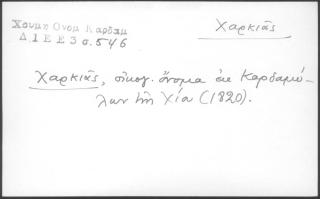 Χουμη Ονομ Καρδαμ
Δ Ι Ε Ε 3 σ. 546
Χαρκιᾶς
Χαρκιᾶς, οἰκογ. ὄνομα ἐκ Καρδαμύ-
λων τῆς Χίου (1820).